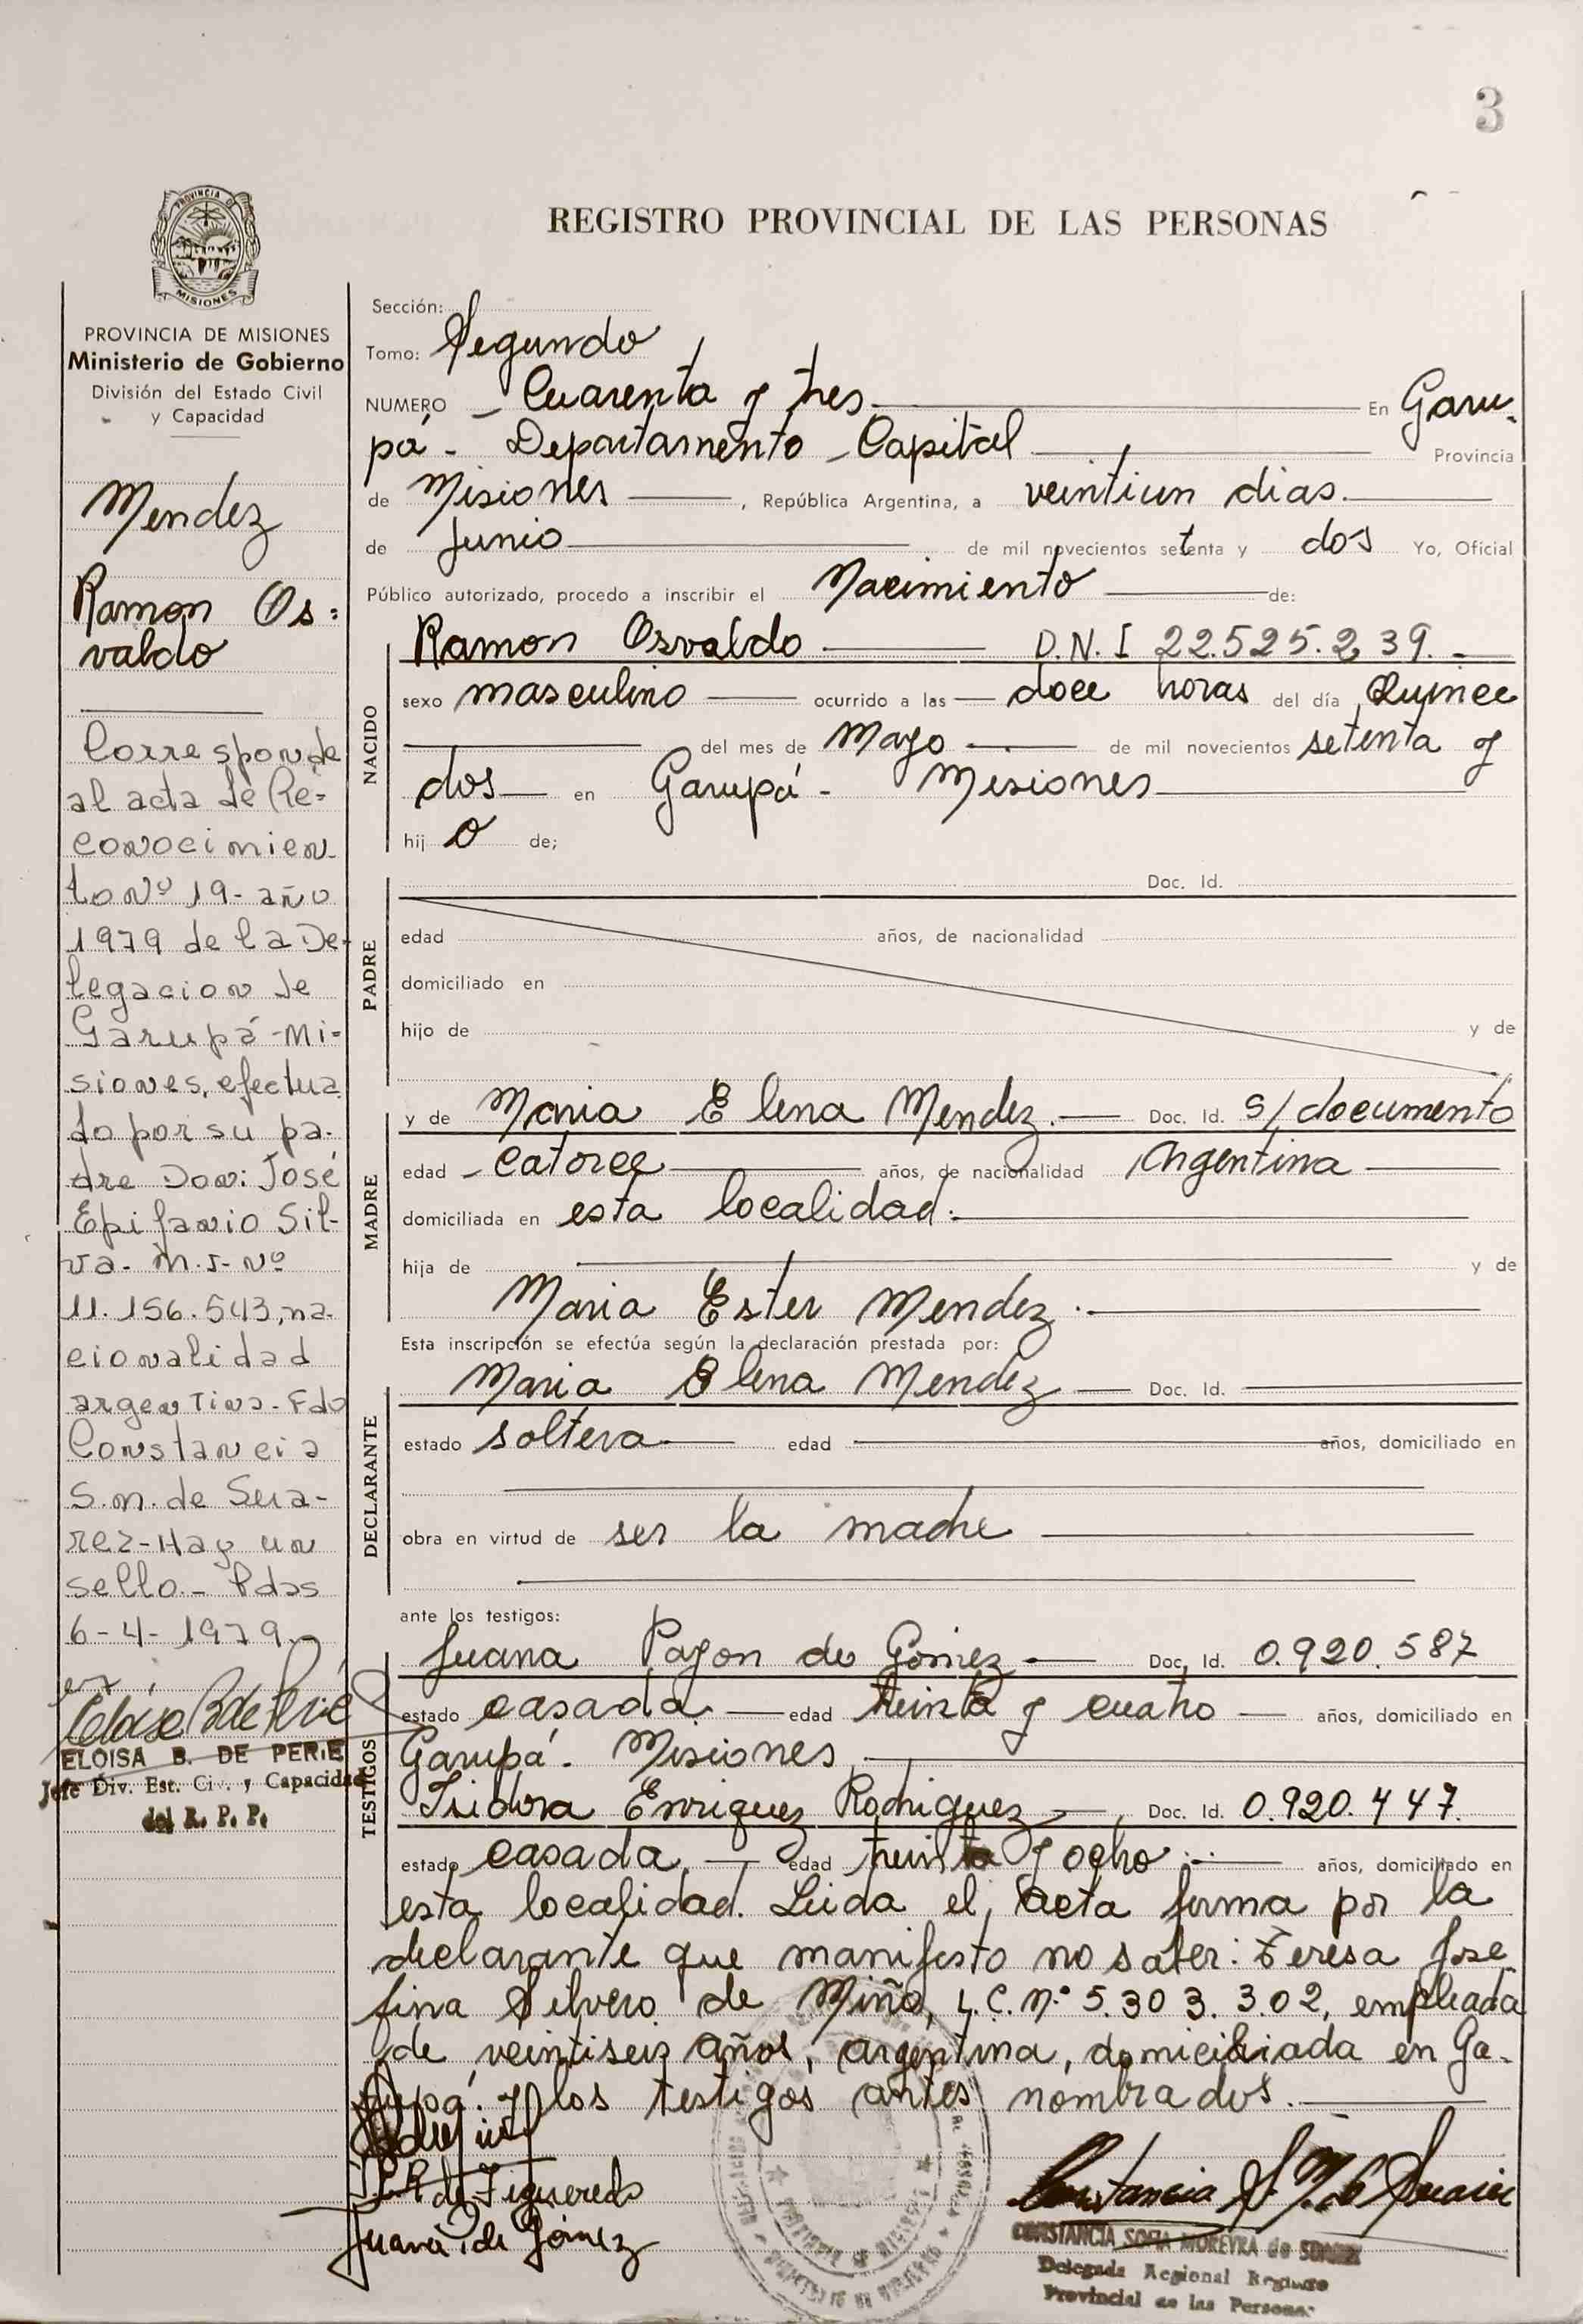 3
REGISTRO PROVINCIAL DE LAS PERSONAS
PROVINCIA DE
MISIONES
PROVINCIA DE MISIONES
Ministerio de Gobierno
División del Estado Civil
y Capacidad
Mendez
Ramon Os=
valdo
Corresponde
al acta de Re=
conocimien
to Nº 19- año
1979 de la De-
legacion de
Garupá-Mi-
siones, efectua
do por su pa-
dre Don: José
Epifanio Sil-
va- M.I- Nº
11.156.543, na-
cionalidad
argentina- Fdo
Constancia
S.M. de Sua-
rez- Hay un
sello.- Pdas
6-4-1979.
ELOISA B. DE PERIE
Jefe Div. Est. Civ. y Capacidad
del R. P. P.
Sección:
Tomo: Segundo
NUMERO - Cuarenta y tres En Garu-
pá - Departamento - Capital Provincia
de Misiones, República Argentina, a veintiun dias.
de Junio de mil novecientos setenta y dos Yo, Oficial
Público autorizado, procedo a inscribir el Nacimiento de:
NACIDO
Ramon Osvaldo D.N.I 22.525.239.-
sexo masculino ocurrido a las doce horas del día Quince
del mes de Mayo de mil novecientos setenta y
dos en Garupá - Misiones
hij o de;
PADRE
Doc. Id.
edad años, de nacionalidad
domiciliado en
hijo de y de
MADRE
y de Maria Elena Mendez.- Doc. Id. s/documento
edad - catorce años, de nacionalidad Argentina
domiciliada en esta localidad.
hija de y de
Maria Ester Mendez.
Esta inscripción se efectúa según la declaración prestada por:
DECLARANTE
Maria Elena Mendez Doc. Id.
estado soltera edad años, domiciliado en
obra en virtud de ser la madre
ante los testigos:
TESTIGOS
Juana Payon de Gomez Doc. Id. 0.920.587
estado casada. edad treinta y cuatro años, domiciliado en
Garupá - Misiones
Isidora Enriquez Rodriguez Doc. Id. 0.920.447.
estado casada. edad treinta y ocho años, domiciliado en
esta localidad. Leida el acta firma por la
declarante que manifesto no saber: Teresa Jose
fina Silvero de Miño, L.C. Nº 5.303.302, empleada
de veintiseis años, argentina, domiciliada en Ga-
rupá. y los testigos antes nombrados.
de Figueredo
Juana P. de Gómez
CONSTANCIA SOFIA MOREYRA de SUAREZ
Delegada Regional Registro
Provincial de las Personas